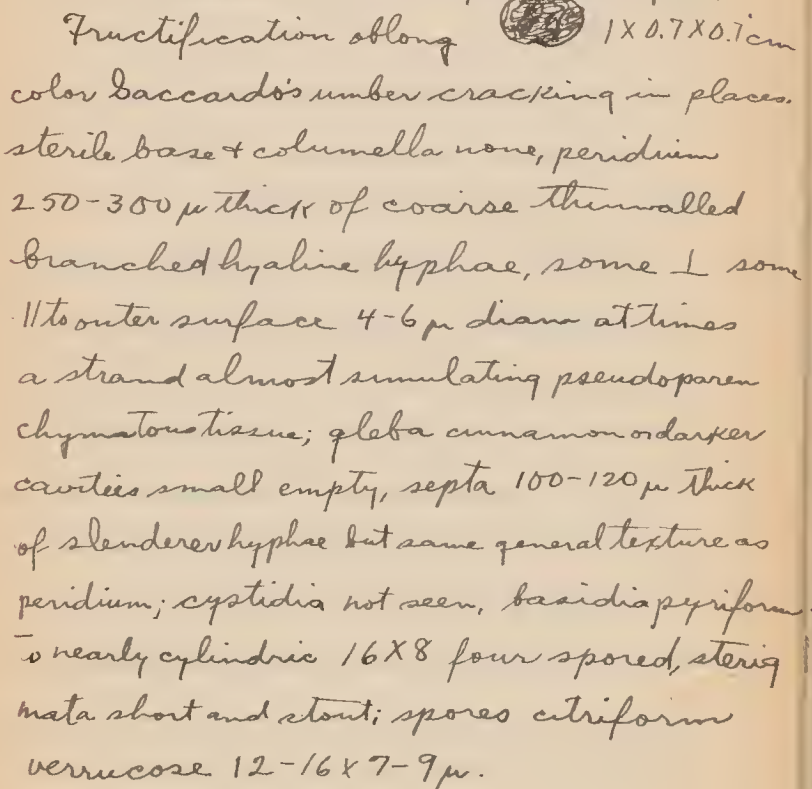 Fructification oblong 1 X 0.7 X 0.7 cm
color Saccardo's umber cracking in places.
sterile base + columella none, peridium
250-300 μ thick of coarse thinwalled
branched hyaline hyphae, some ⊥ some
|| to outer surface 4-6 μ diam at times
a strand almost simulating pseudoparen
chymatous tissue; gleba cinnamon or darker
cavities small empty, septa 100-120 μ thick
of slenderer hyphae but same general texture as
peridium; cystidia not seen, basidia pyriform
to nearly cylindric 16 X 8 four spored, sterig
mata short and stout; spores citriform
verrucose 12-16 X 7-9 μ.